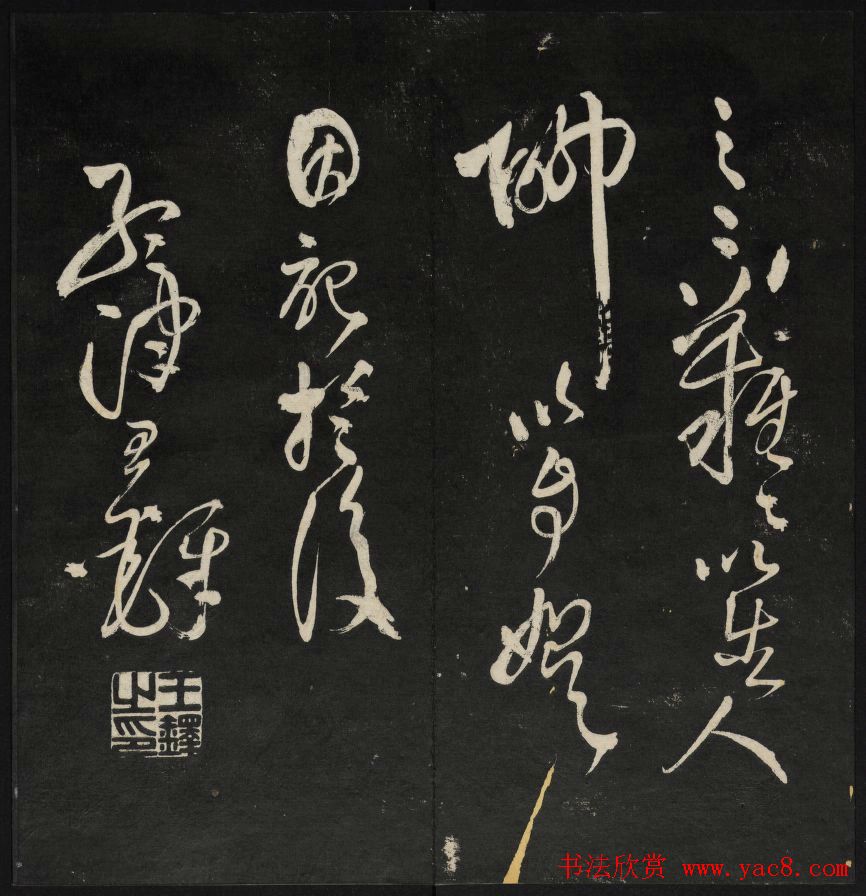 難以人
聊以自娛
因記於後
孟津王鐸
王鐸之印
书法欣赏 www.yac8.com